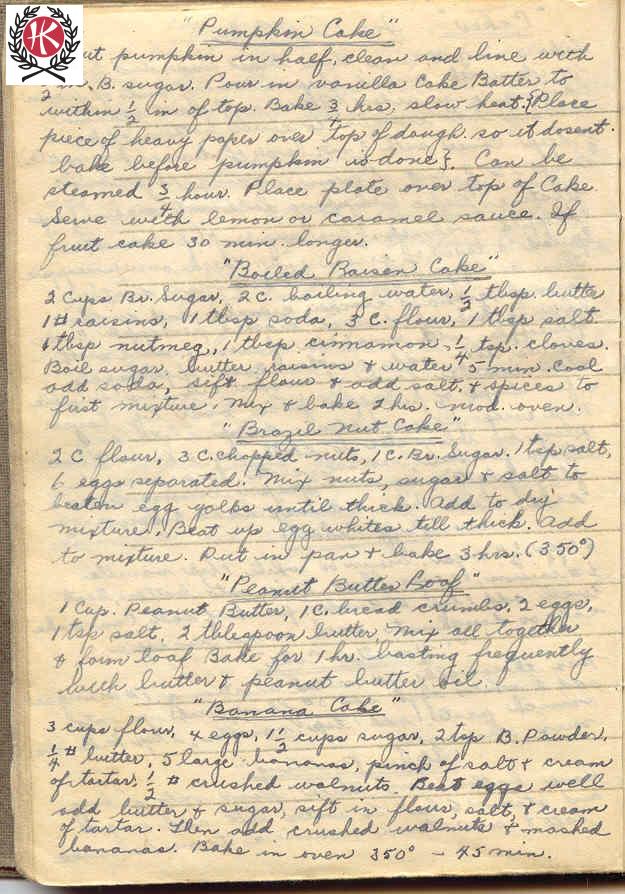 HK
"Pumpkin Cake"
ut pumpkin in half, clean and line with
1/2 in. B. sugar. Pour in vanilla Cake Batter to
within 1/2 in of top. Bake 3/4 hrs. slow heat. {Place
piece of heavy paper over top of dough. so it dosent
bake before pumpkin is done}. Can be
steamed 3/4 hour. Place plate over top of Cake
Serve with lemon or caramel sauce. If
fruit cake 30 min. longer.
"Boiled Raisen Cake"
2 Cups Br. Sugar, 2 C. boiling water, 1/2 tbsp. butter
1 # raisins, 1 tbsp soda, 3 C. flour, 1 tbsp salt.
1 tbsp nutmeg, 1 tbsp cinnamon, 1/4 tsp. cloves.
Boil sugar, butter, raisins & water 5 min. Cool
add soda, sift flour & add salt. & spices to
first mixture. Mix & bake 2 hrs. mod. oven.
"Brazil Nut Cake"
2 C flour, 3 C. chopped nuts, 1 C. Br. Sugar. 1 tsp salt,
6 eggs separated. Mix nuts, sugar & salt to
beaten egg yolks until thick. Add to dry
mixture. Beat up egg whites till thick. Add
to mixture. Put in pan & bake 3 hrs. (350°)
"Peanut Butter Loaf"
1 Cup. Peanut Butter, 1 C. bread crumbs. 2 eggs,
1 tsp salt, 2 tblespoon butter, Mix all together
& form loaf Bake for 1 hr. basting frequently
with butter & peanut butter oil.
"Banana Cake"
3 cups flour, 4 eggs, 1 1/2 cups sugar, 2 tsp B. Powder,
1/4 # butter, 5 large bananas, pinch of salt & cream
of tartar, 1/2 # crushed walnuts. Beat eggs well
add butter & sugar, sift in flour, salt, & cream
of tartar. Then add crushed walnuts & mashed
bananas. Bake in oven 350° - 45 min.